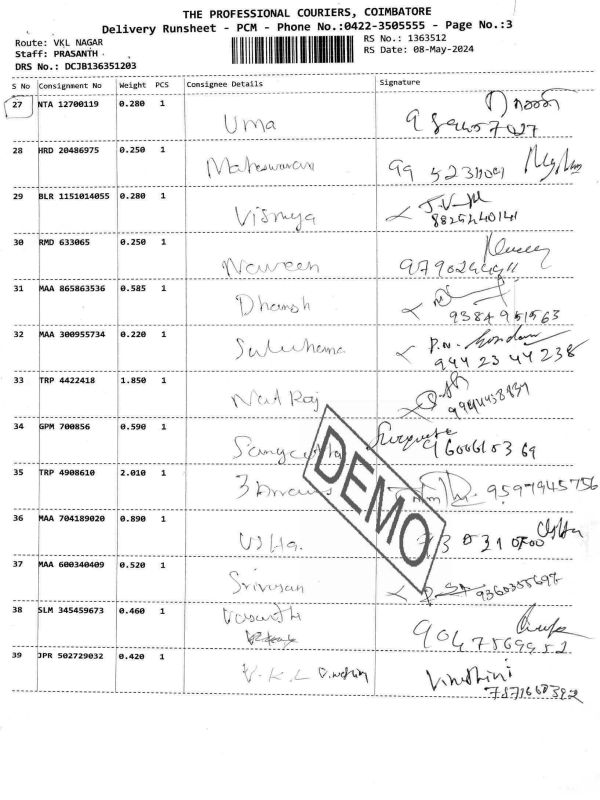 THE PROFESSIONAL COURIERS, COIMBATORE
Delivery Runsheet - PCM - Phone No.:0422-3505555 - Page No.:3
Route: VKL NAGAR
Staff: PRASANTH
DRS No.: DCJB136351203
RS No.: 1363512
RS Date: 08-May-2024
S No Consignment No Weight PCS Consignee Details Signature
27 NTA 12700119 0.280 1 Uma
28 HRD 20486975 0.250 1 Maheswaran
29 BLR 1151014055 0.280 1 Vismya 8825440141
30 RMD 633065 0.250 1 Naveen
31 MAA 865863536 0.585 1 Dhansh 9384951563
32 MAA 300955734 0.220 1 P.N. 9442344238
33 TRP 4422418 1.850 1 Nat Raj
34 GPM 700856 0.590 1 9600610369
35 TRP 4908610 2.010 1 9597945756
36 MAA 704189020 0.890 1 Usha
37 MAA 600340409 0.520 1 9360355697
38 SLM 345459673 0.460 1 Vasanthi 9047569952
39 JPR 502729032 0.420 1 V.K.L Vinothini
DEMO